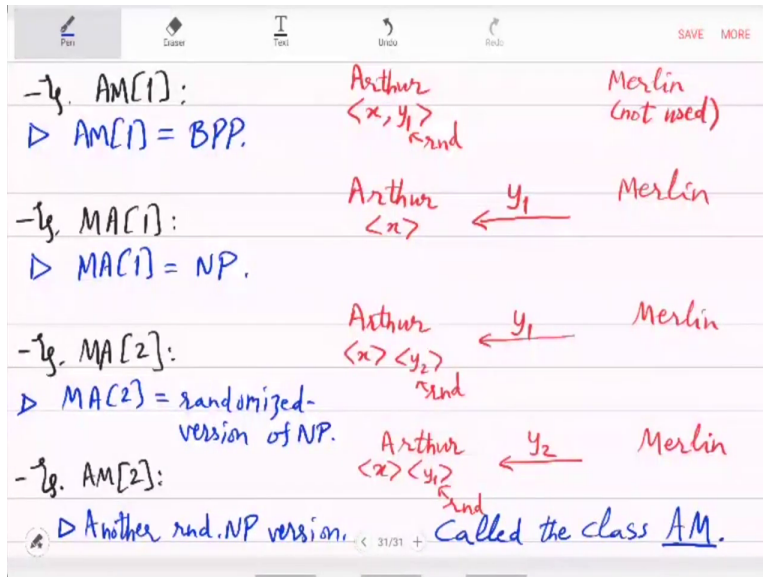 Pen Eraser Text Undo Redo SAVE MORE
-Eg. AM[1]: Arthur Merlin
<x, y₁> (not used)
▷ AM[1] = BPP. ↖rnd
-Eg. MA[1]: Arthur ← y₁ Merlin
<x>
▷ MA[1] = NP.
-Eg. MA[2]: Arthur ← y₁ Merlin
<x> <y₂>
↖rnd
▷ MA[2] = randomized-
version of NP.
-Eg. AM[2]: Arthur ← y₂ Merlin
<x> <y₁>
↖rnd
▷ Another rnd. NP version. Called the class AM.
< 31/31 +